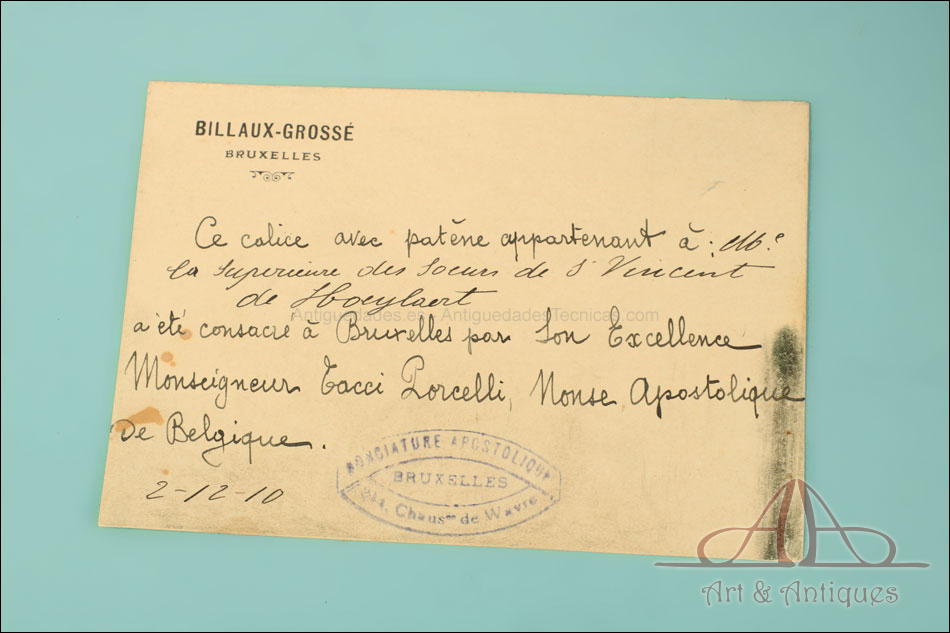 BILLAUX-GROSSÉ
BRUXELLES
Ce calice avec patène appartenant à: M.e
la Superieure des Soeurs de St Vincent
de Hoeylaert
Antiguedades.es - AntiguedadesTecnicas.com
a été consacré à Bruxelles par Son Excellence
Monseigneur Tacci Porcelli, Nonse Apostolique
de Belgique.
2-12-10
NONCIATURE APOSTOLIQUE
BRUXELLES
214, Chaussée de Wavre
Art & Antiques